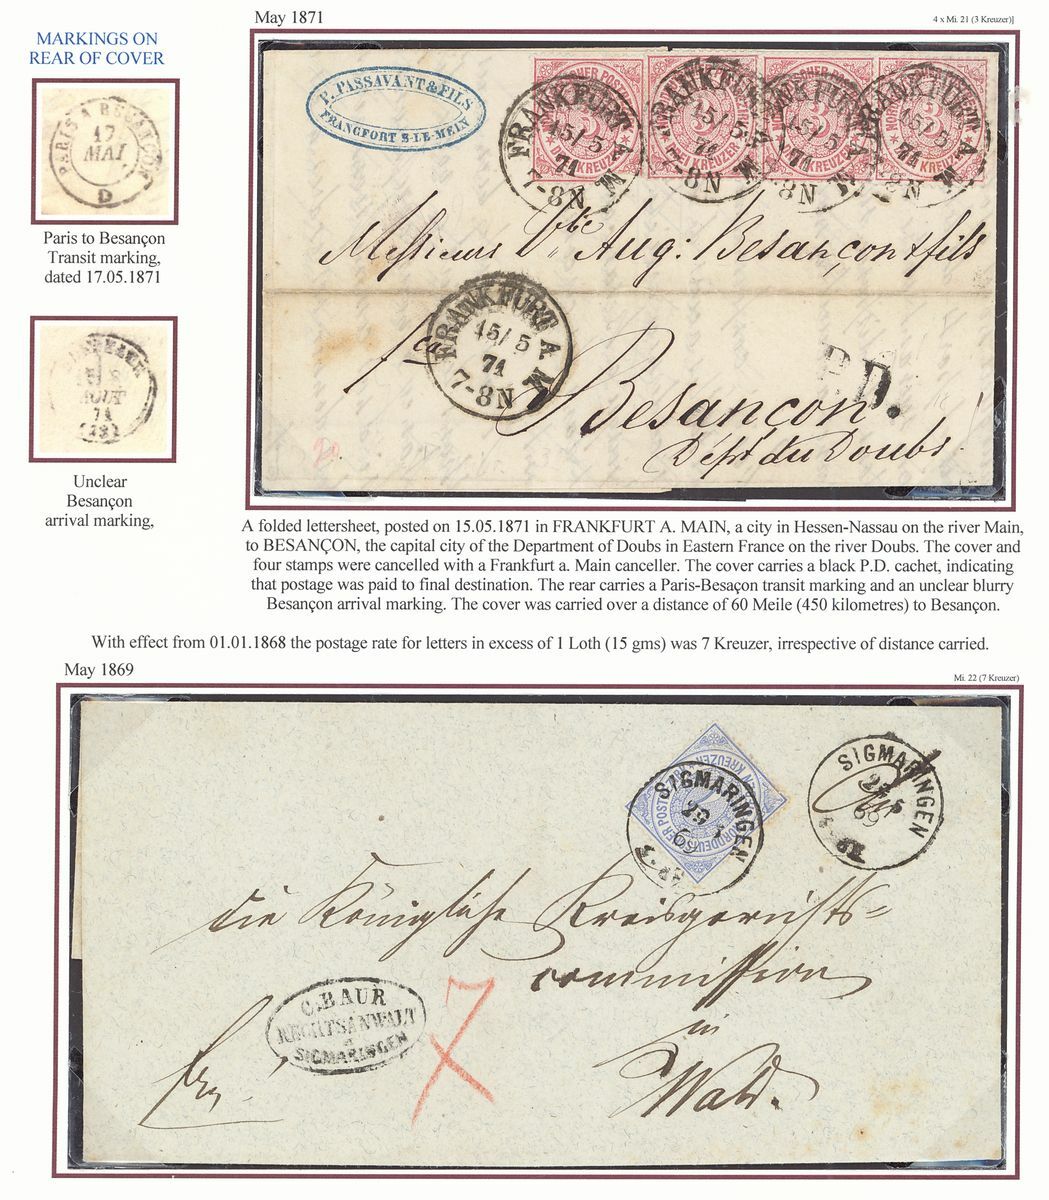 May 1871
4 x Mi. 21 (3 Kreuzer)]
MARKINGS ON
REAR OF COVER
PARIS A BESANCON
17
MAI
D
Paris to Besançon
Transit marking,
dated 17.05.1871
AOUT
71
(18)
Unclear
Besançon
arrival marking,
P. PASSAVANT & FILS
FRANCFORT S-LE-MEIN
FRANKFURT A. M.
15/5
71
7-8N
FRANKFURT A. M.
15/5
71
7-8N
FRANKFURT A. M.
15/5
71
7-8N
FRANKFURT A. M.
15/5
71
7-8N
NORDDEUTSCHER POSTBEZIRK
3
DREI KREUZER
Messieurs Vve Aug: Besançon & fils
FRANKFURT A. M.
15/5
71
7-8N
P.D.
Besançon
Dépt du Doubs
A folded lettersheet, posted on 15.05.1871 in FRANKFURT A. MAIN, a city in Hessen-Nassau on the river Main,
to BESANÇON, the capital city of the Department of Doubs in Eastern France on the river Doubs. The cover and
four stamps were cancelled with a Frankfurt a. Main canceller. The cover carries a black P.D. cachet, indicating
that postage was paid to final destination. The rear carries a Paris-Besaçon transit marking and an unclear blurry
Besançon arrival marking. The cover was carried over a distance of 60 Meile (450 kilometres) to Besançon.
With effect from 01.01.1868 the postage rate for letters in excess of 1 Loth (15 gms) was 7 Kreuzer, irrespective of distance carried.
May 1869
Mi. 22 (7 Kreuzer)
NORDDEUTSCHER POSTBEZIRK
KREUZER
SIGMARINGEN
29
69
SIGMARINGEN
69
die Königliche Kreisgerichts=
commission
in
Wald.
C. BAUR
RECHTSANWALT
SIGMARINGEN
7